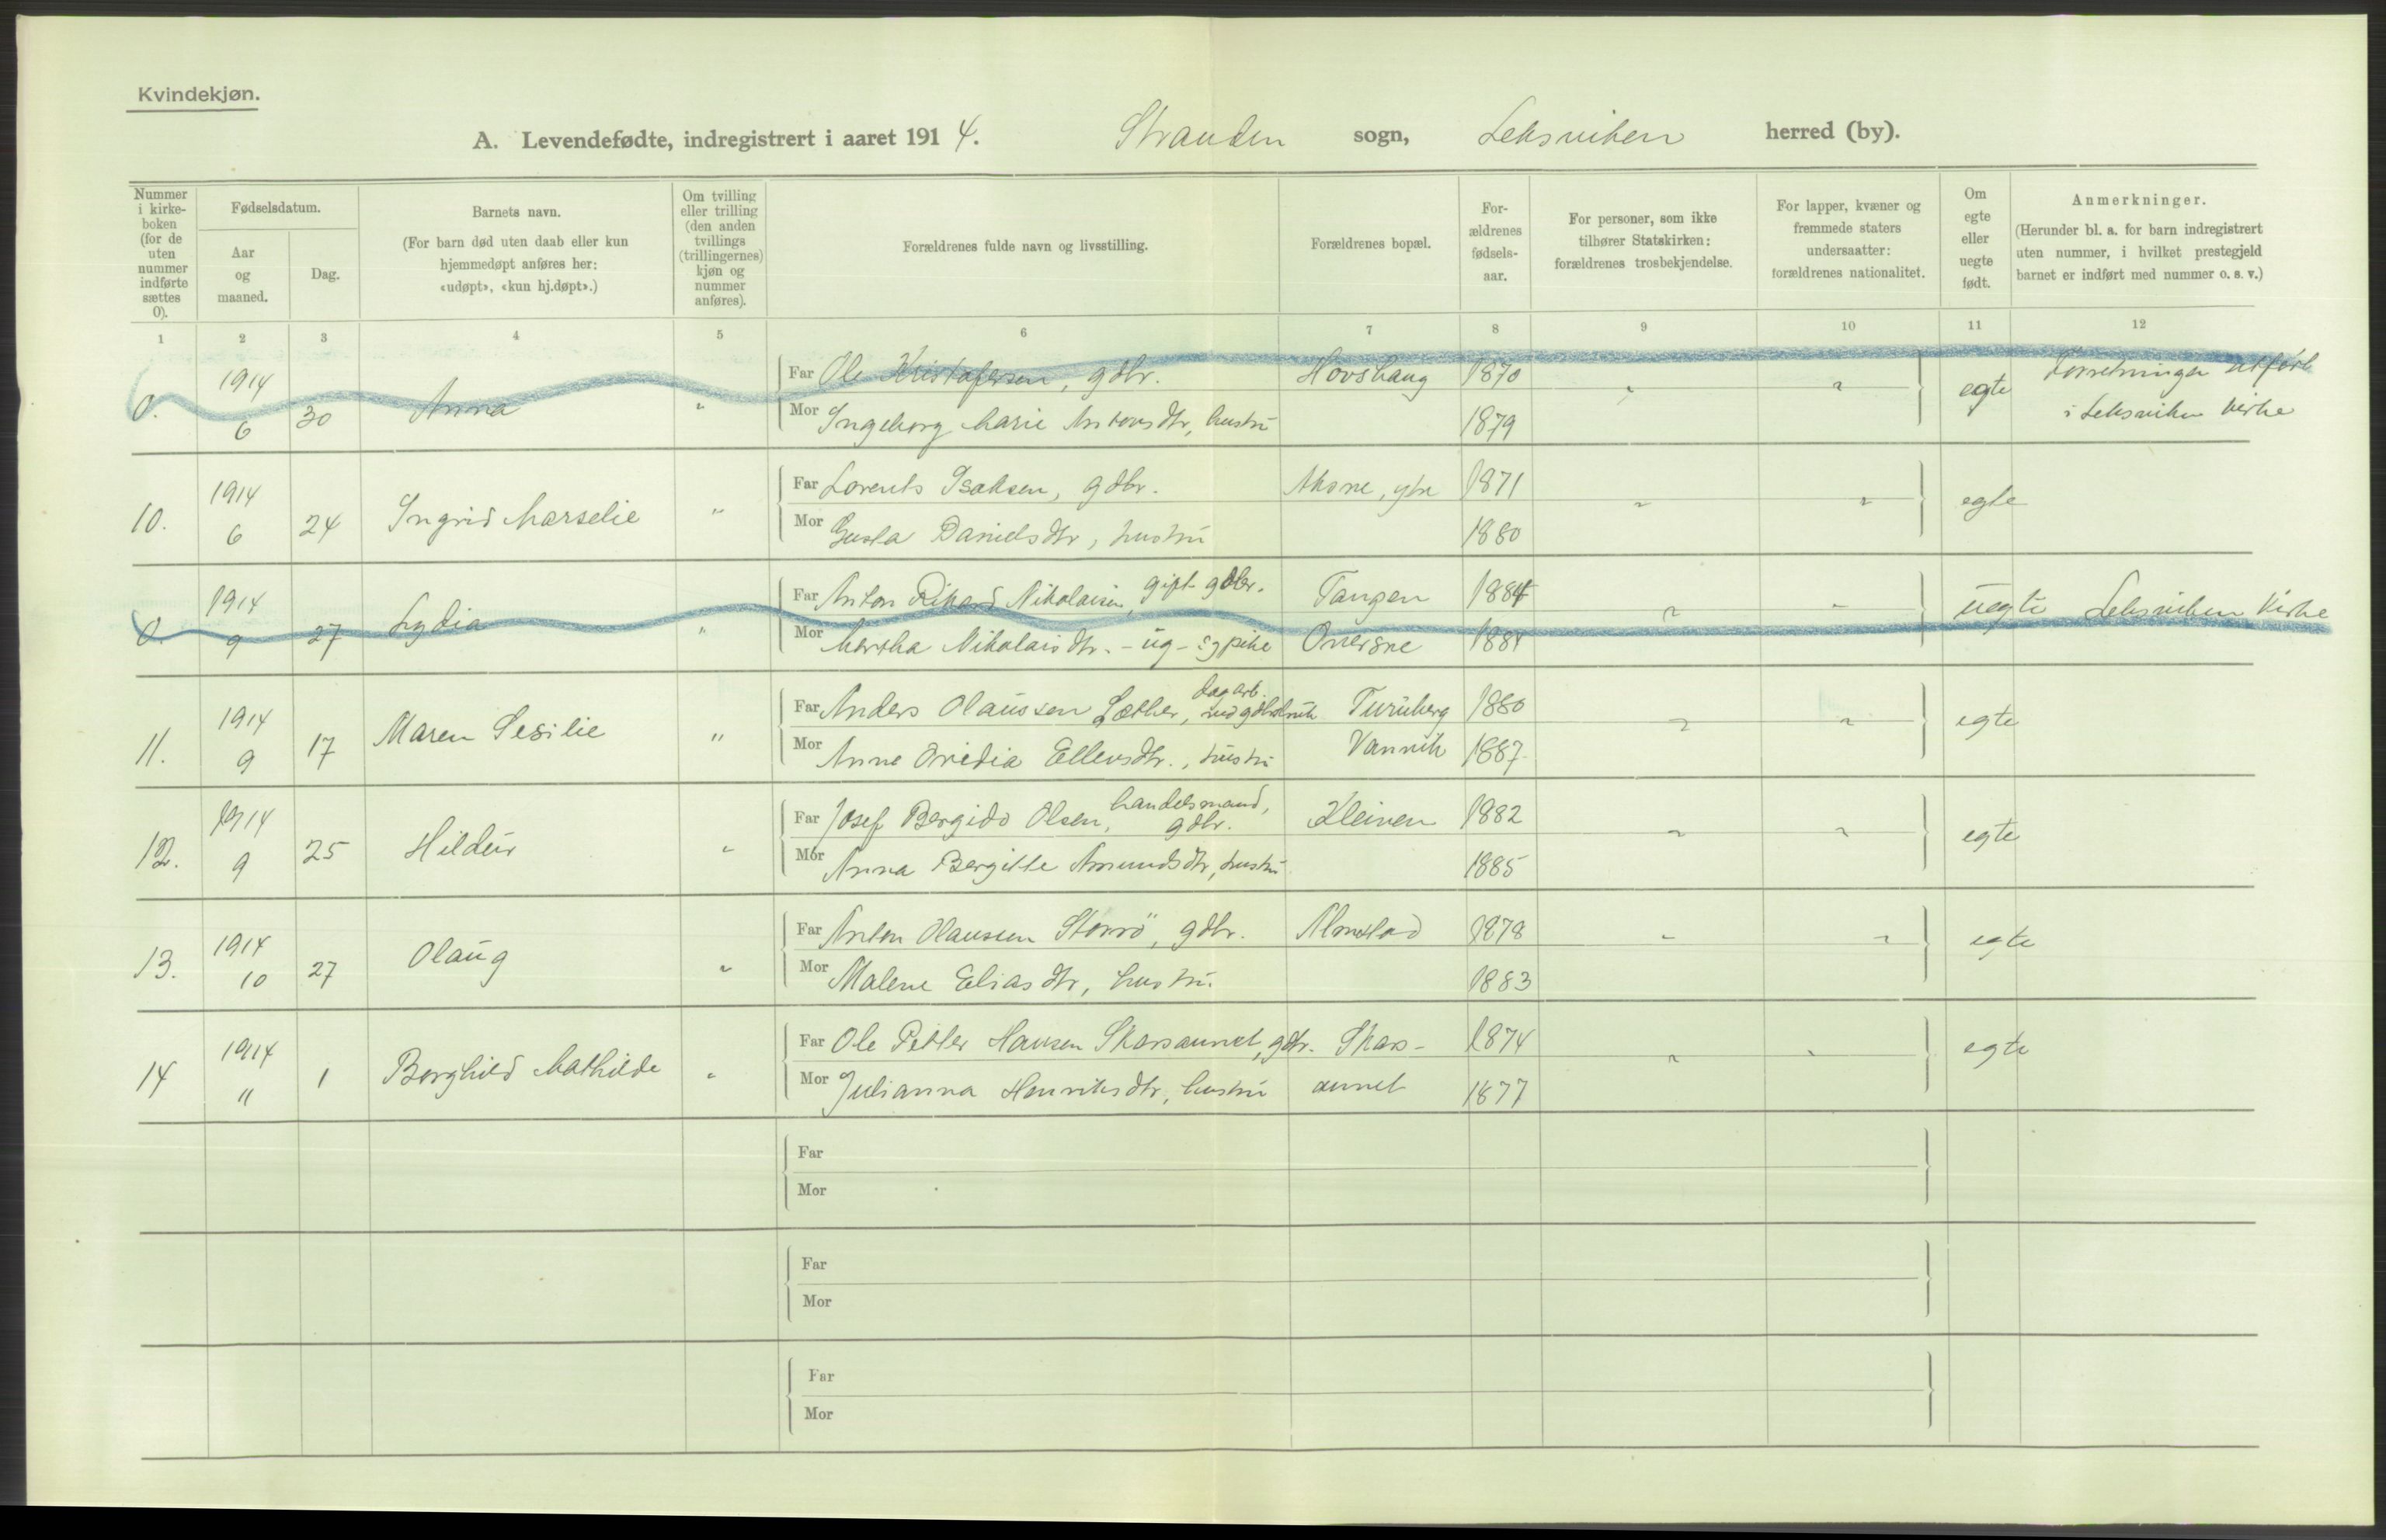 Kvindekjøn.
A. Levendefødte, indregistrert i aaret 1914. Stranden sogn, Leksviken herred (by).
Nummer i kirke-boken (for de uten nummer indførte sættes 0).
Fødselsdatum.
Aar og maaned.
Dag.
Barnets navn.
(For barn død uten daab eller kun hjemmedøpt anføres her: «udøpt», «kun hj.døpt».)
Om tvilling eller trilling (den anden tvillings (trillingernes) kjøn og nummer anføres).
Forældrenes fulde navn og livsstilling.
Forældrenes bopæl.
For-ældrenes fødsels-aar.
For personer, som ikke tilhører Statskirken: forældrenes trosbekjendelse.
For lapper, kvæner og fremmede staters undersaatter: forældrenes nationalitet.
Om egte eller uegte født.
Anmerkninger.
(Herunder bl. a. for barn indregistrert uten nummer, i hvilket prestegjeld barnet er indført med nummer o. s. v.)
1 2 3 4 5 6 7 8 9 10 11 12
0. 1914 6 30 Anna " Far Ole Kristofersen, gdbr. Hovshaug 1870 " " egte Forretningen utført
Mor Ingeborg Marie Antonsdtr, hustru 1879 i Leksviken kirke
10. 1914 6 24 Ingrid Marselie " Far Lorents Isaksen, gdbr. Aksne, ytre 1871 " " egte
Mor Gusta Danielsdtr, hustru 1880
0. 1914 9 27 Lydia " Far Anton Rikard Nikolaisen, gift gdbr. Tangen 1884 " " uegte Leksviken kirke
Mor Martha Nikolaisdtr. - ug - sypike 1881
11. 1914 9 17 Maren Sesilie " Far Anders Olaussen Sæther, dagarb. Turuberg 1880 " " egte
Mor Anne Ovidia Ellevsdtr., hustru Vanvik 1887
12. 1914 9 25 Hildur " Far Josef Bergido Olsen, handelsmand, gdbr. Kleiven 1882 " " egte
Mor Anna Bergitte Amundsdtr, hustru 1885
13. 1914 10 27 Olaug " Far Anton Olaussen Storrö, gdbr. Almstad 1878 " " egte
Mor Malene Eliasdtr, hustru. 1883
14 1914 11 1 Borghild Mathilde " Far Ole Petter Hansen Skarsaunet, gdbr. Skars- 1874 " " egte
Mor Julianna Henriksdtr, hustru aunet 1877
Far
Mor
Far
Mor
Far
Mor